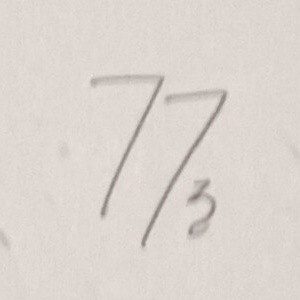 77
3